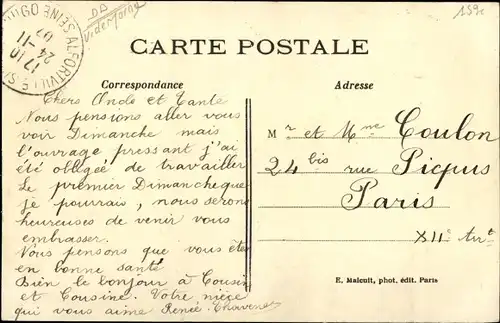 159c
17 10
24-11
07
ALFORTVILLE SEINE
CARTE POSTALE
Correspondance
Adresse
Chers Oncle et Tante
Nous pensions aller vous
voir Dimanche mais
l'ouvrage pressant j'ai
été obligée de travailler
Le premier Dimanche que
je pourrais, nous serons
heureuses de venir vous
embrasser.
Nous pensons que vous êtes
en bonne santé
Bien le bonjour à Cousin
et Cousine. Votre nièce
qui vous aime Renée
Mr et Mme Coulon
24 bis rue Picpus
Paris
XIIe Arrt
E. Malcuit, phot. édit. Paris